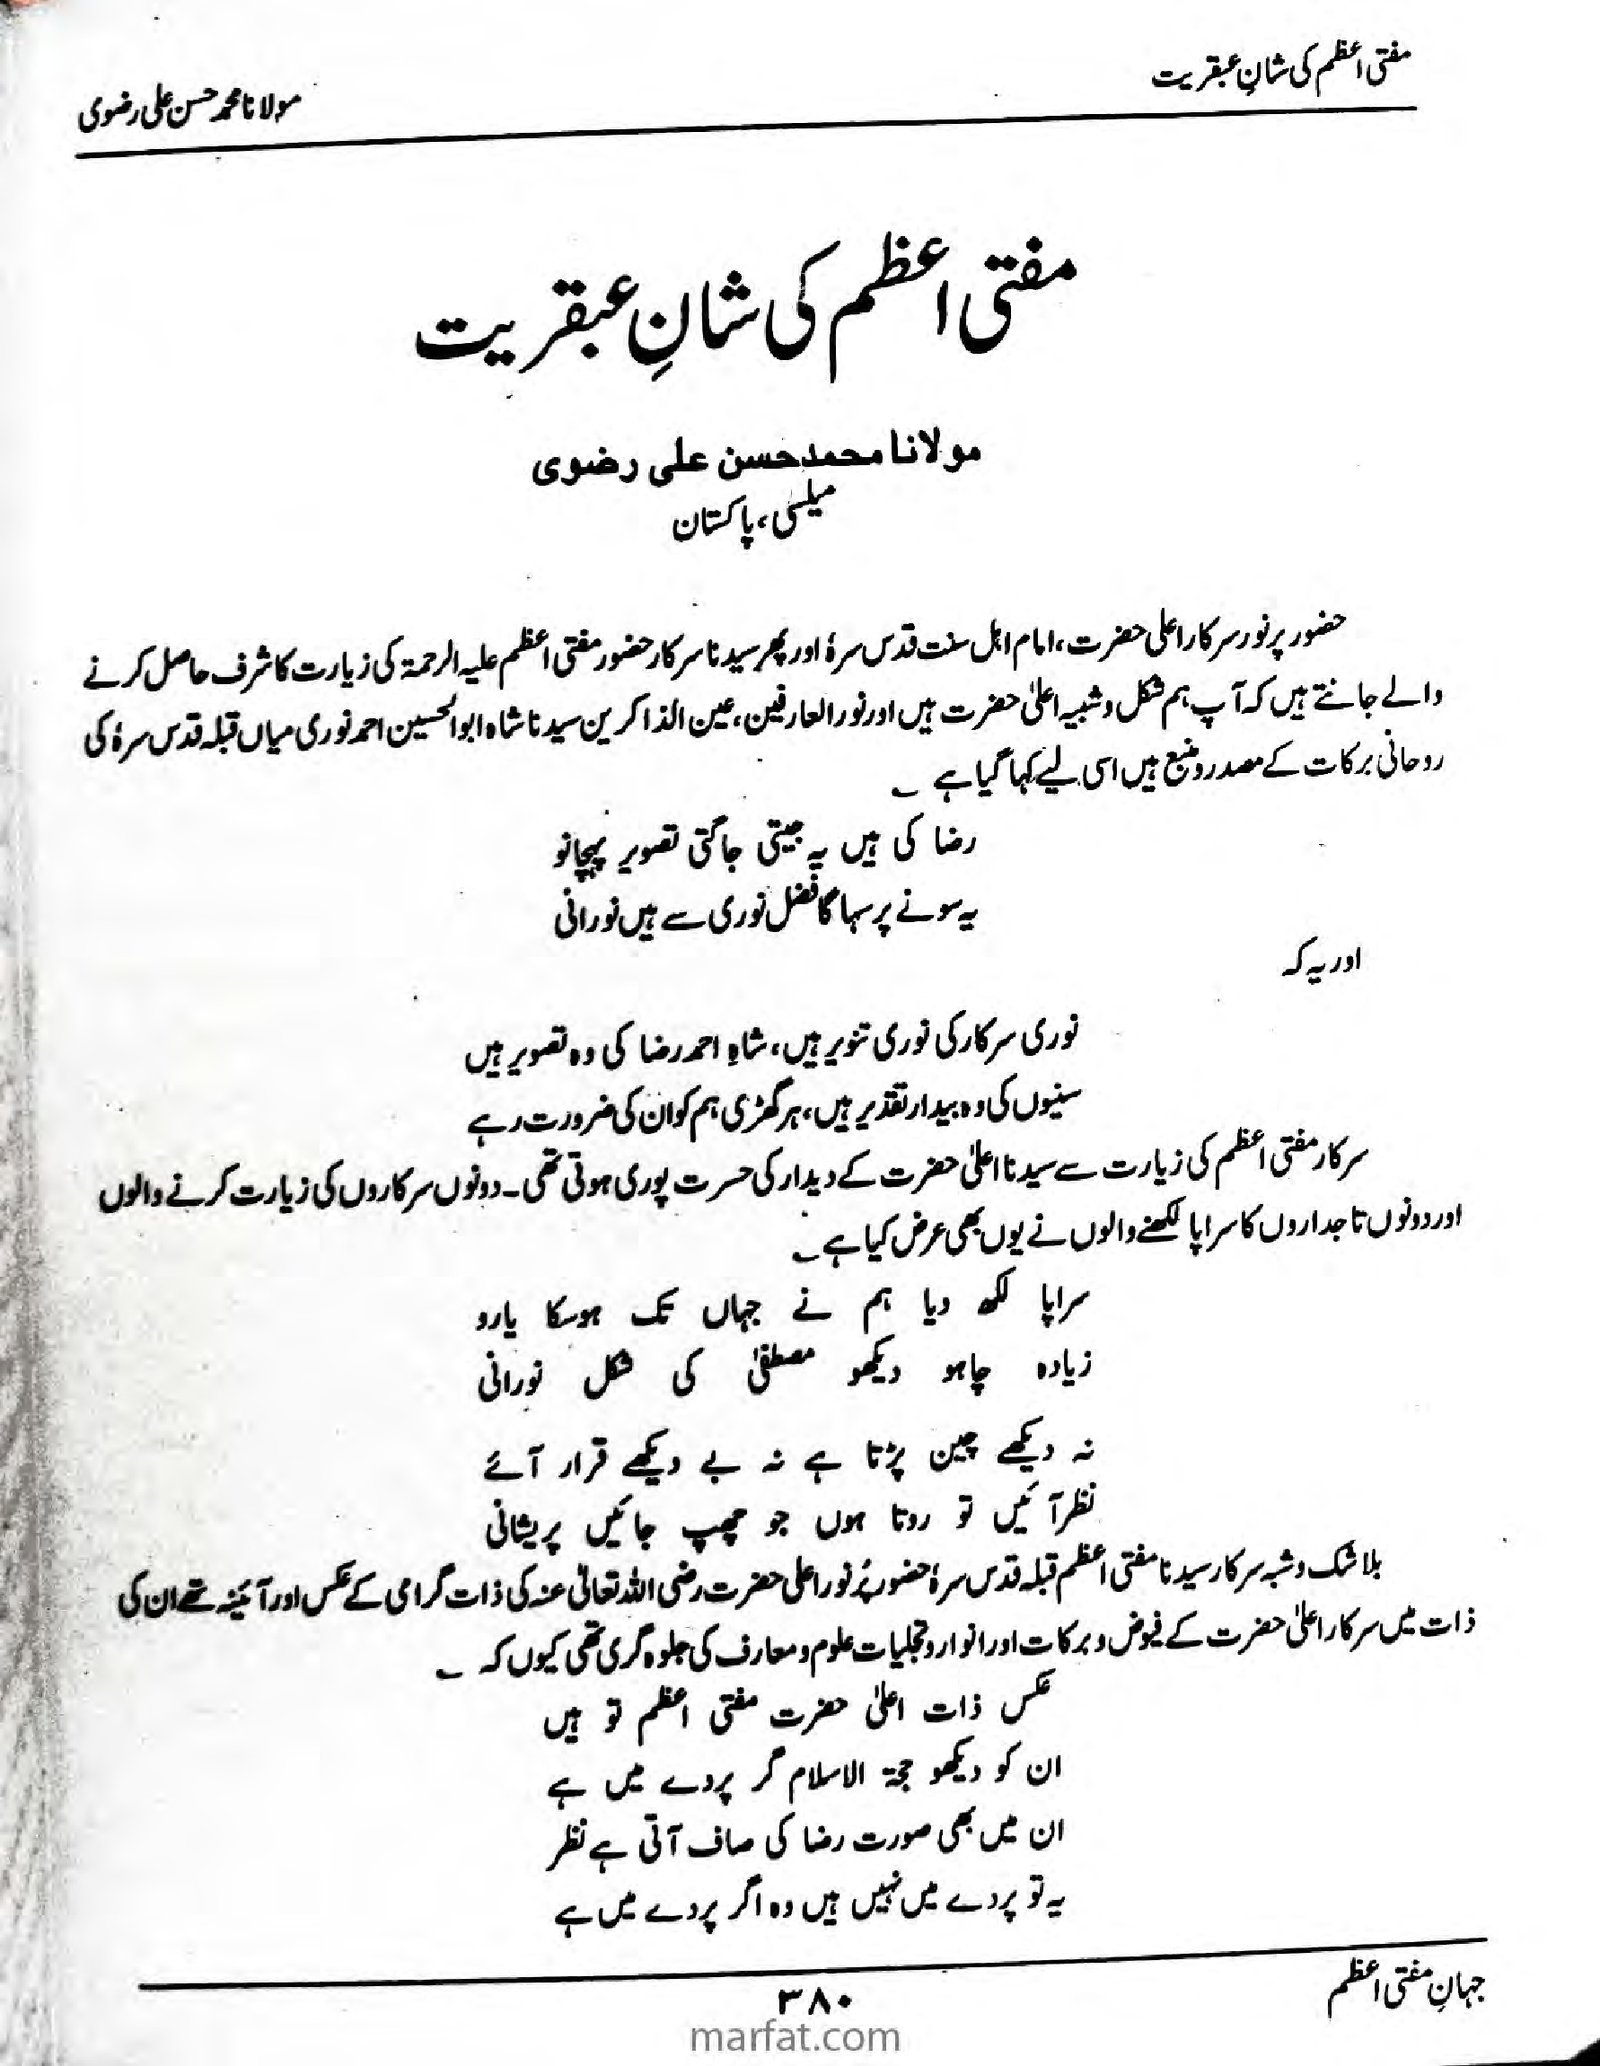 مفتی اعظم کی شانِ عبقریت
مولانا محمد حسن علی رضوی
مفتی اعظم کی شانِ عبقریت
مولانا محمد حسن علی رضوی
میلسی، پاکستان
حضور پر نور سرکار اعلی حضرت، امام اہل سنت قدس سرہٗ اور پھر سیدنا سرکار حضور مفتی اعظم علیہ الرحمۃ کی زیارت کا شرف حاصل کرنے
والے جانتے ہیں کہ آپ ہم شکل و شبیہِ اعلیٰ حضرت ہیں اور نور العارفین، عین الذاکرین سیدنا شاہ ابوالحسین احمد نوری میاں قبلہ قدس سرہٗ کی
روحانی برکات کے مصدر و منبع ہیں اسی لیے کہا گیا ہے ؎
رضا کی ہیں یہ جیتی جاگتی تصویر پہچانو
یہ سونے پر سہاگا فضل نوری سے ہیں نورانی
اور یہ کہ
نوری سرکار کی نوری تنویر ہیں، شاہِ احمد رضا کی وہ تصویر ہیں
سنیوں کی وہ بیدار تقدیر ہیں، ہر گھڑی ہم کو ان کی ضرورت رہے
سرکار مفتی اعظم کی زیارت سے سیدنا اعلیٰ حضرت کے دیدار کی حسرت پوری ہوتی تھی۔ دونوں سرکاروں کی زیارت کرنے والوں
اور دونوں تاجداروں کا سراپا لکھنے والوں نے یوں بھی عرض کیا ہے ؎
سراپا لکھ دیا ہم نے جہاں تک ہوسکا یارو
زیادہ چاہو دیکھو مصطفیٰ کی شکل نورانی
نہ دیکھے چین پڑتا ہے نہ بے دیکھے قرار آئے
نظر آئیں تو روتا ہوں جو چھپ جائیں پریشانی
بلا شک و شبہ سرکار سیدنا مفتی اعظم قبلہ قدس سرہٗ حضور پُرنور اعلی حضرت رضی اللہ تعالیٰ عنہ کی ذات گرامی کے عکس اور آئینہ تھے ان کی
ذات میں سرکار اعلیٰ حضرت کے فیوض و برکات اور انوار و تجلیات علوم و معارف کی جلوہ گری تھی کیوں کہ ؎
عکس ذات اعلیٰ حضرت مفتی اعظم تو ہیں
ان کو دیکھو حجۃ الاسلام گر پردے میں ہے
ان میں بھی صورت رضا کی صاف آتی ہے نظر
یہ تو پردے میں نہیں ہیں وہ اگر پردے میں ہے
جہانِ مفتی اعظم
۳۸۰
marfat.com